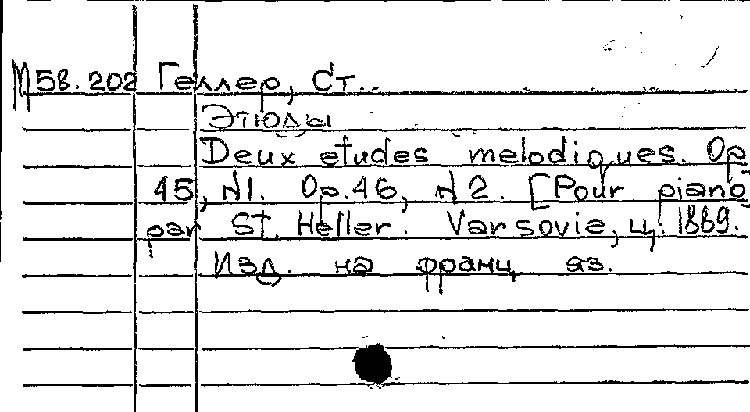 М58.202 Геллер, Ст..
Этюды
Deux etudes melodiques. Op
45, N1. Op.46, N2. [Pour piano]
par St. Heller. Varsovie, ц. 1869.
Изд. на франц яз.